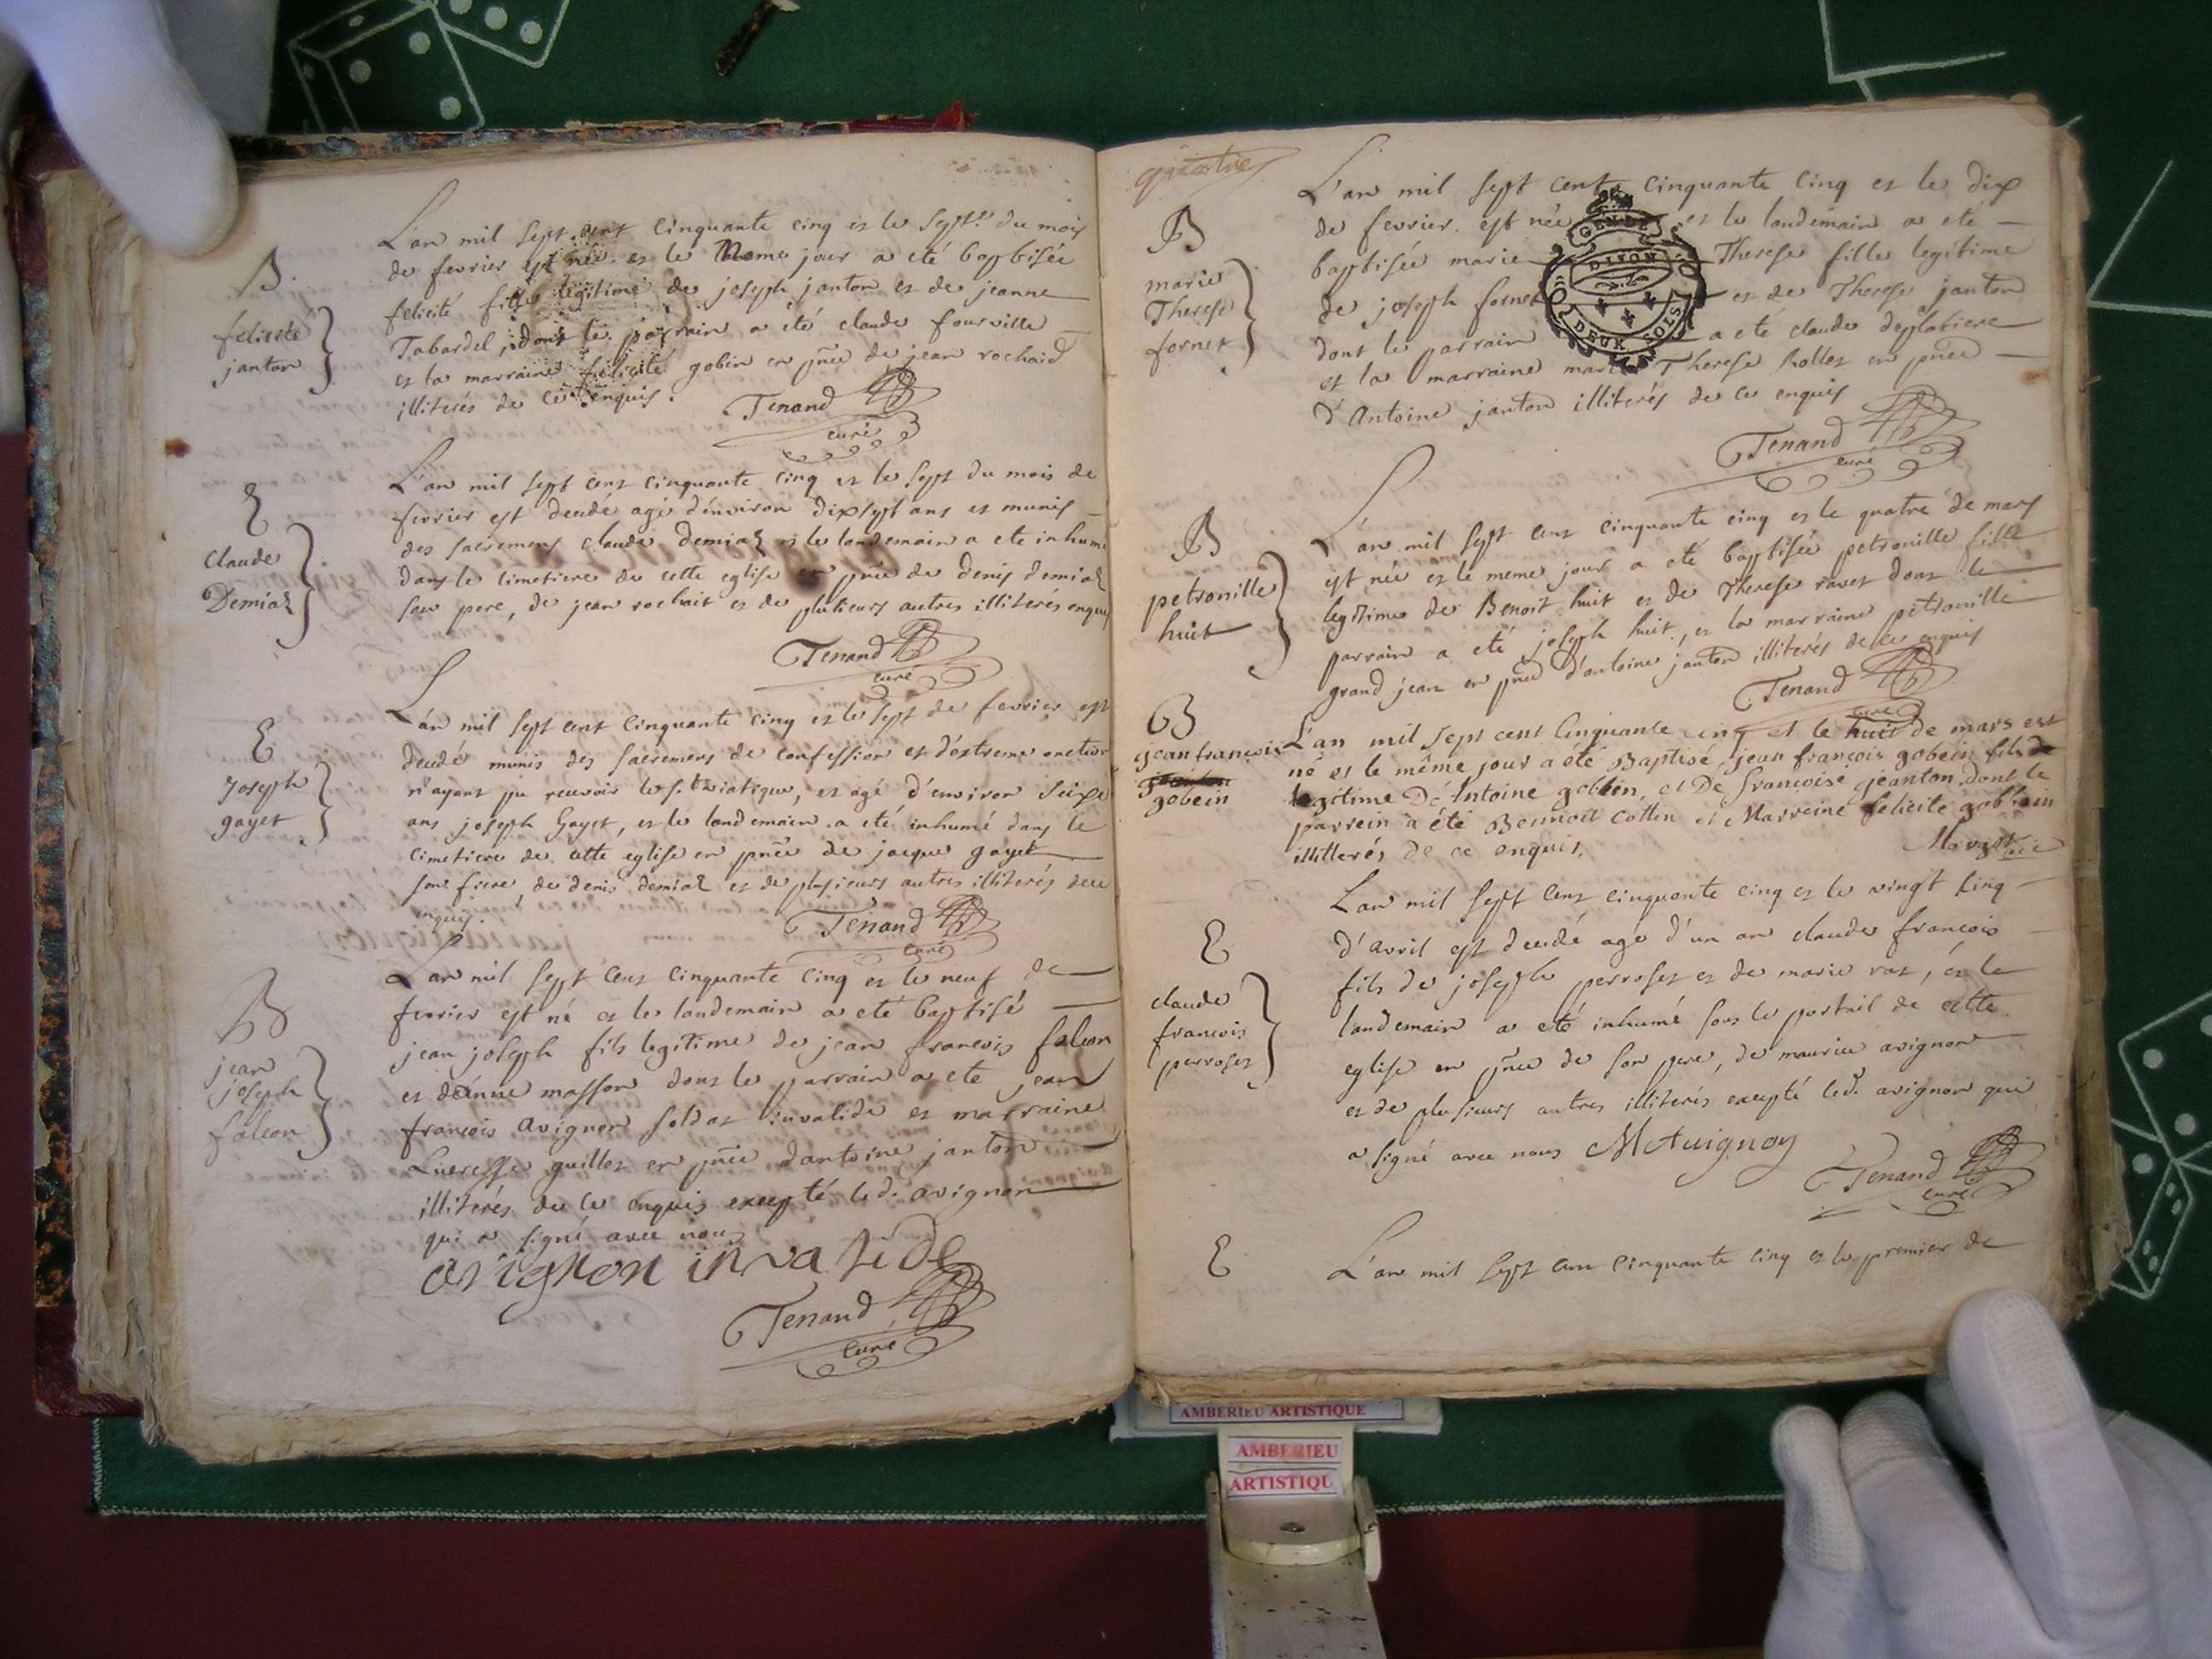 B.
felicité
janton
L'an mil sept cent cinquante cinq et le sept.e du mois
de fevrier est née et le meme jour a eté baptisée
felicité fille legitime de joseph janton et de jeanne
Tabardel, dont le parrain a eté claude fourville
et la marraine felicité gobin en pnce de jean rochaid
illiterés de ce enquis.
Tenand
curé
E
claude
Demiaz
L'an mil sept cent cinquante cinq et le sept du mois de
fevrier est decedé agé d'environ dixsept ans et munis
des sacremens claude Demiaz et le landemain a ete inhumé
dans le cimetiere de cette eglise en pnce de denis demiaz
son pere, de jean rochait et de plusieurs autres illiterés enquis
Tenand
curé
E
Joseph
gayet
L'an mil sept cent cinquante cinq et le sept de fevrier est
decedé munis des sacremens de confession et d'extreme onction
n'ayant pu recevoir le s.t viatique, et agé d'environ seize
ans joseph Gayet, et le landemain a eté inhumé dans le
cimetiere de cette eglise en pnce de jacque gayet
son frere, de denis demiaz et de plusieurs autres illiterés de ce
enquis.
Tenand
curé
B
jean
joseph
falcon
L'an mil sept cent cinquante cinq et le neuf de
fevrier est né et le landemain a eté baptisé
jean joseph fils legitime de jean francois falcon
et d'anne masson dont le parrain a ete jean
francois avignon soldat invalide et marraine
Lucresse guillet en pnce d'antoine janton
illiterés de ce enquis excepté led. avignon
qui a signé avec nous
avignon invalide
Tenand
curé
quatre
B
marie
Therese
fornet
GEN DE
DIJON
DEUX SOLS
L'an mil sept cent cinquante cinq et le dix
de fevrier est née et le landemain a eté
baptisée marie Therese fille legitime
de joseph fornet et de Therese janton
dont le parrain a eté claude deplatiere
et la marraine marie Therese Rollet en pnce
d'Antoine janton illiterés de ce enquis
Tenand
curé
B
petronille
huit
L'an mil sept cent cinquante cinq et le quatre de mars
est née et le meme jour a eté baptisée petronille fille
legitime de Benoit huit et de Therese ravet dont le
parrain a eté joseph huit, et la marraine petronille
grand jean en pnce d'antoine janton illiterés de ce enquis
Tenand
curé
B
jean francois
gobein
L'an mil sept cent cinquante cinq et le huit de mars est
né et le même jour a été Baptisé jean françois gobein fils
legitime D'Antoine gobein, et De francoise jeanton dont le
parrein a été Bennoit Cottin et Marreine felicite gobein
illitterés De ce enquis,
E
claude
francois
perroset
L'an mil sept cent cinquante cinq et le vingt cinq
d'avril est decedé agé d'un an claude francois
fils de joseph perroset et de marie rat, et le
landemain a eté inhumé sous le portail de cette
eglise en pnce de son pere, de maurice avignon
et de plusieurs autres illiterés excepté led. avignon qui
a signé avec nous MAvignon
Tenand
curé
E
L'an mil sept cent cinquante cinq et le premier de
AMBERIEU ARTISTIQUE
AMBERIEU
ARTISTIQU